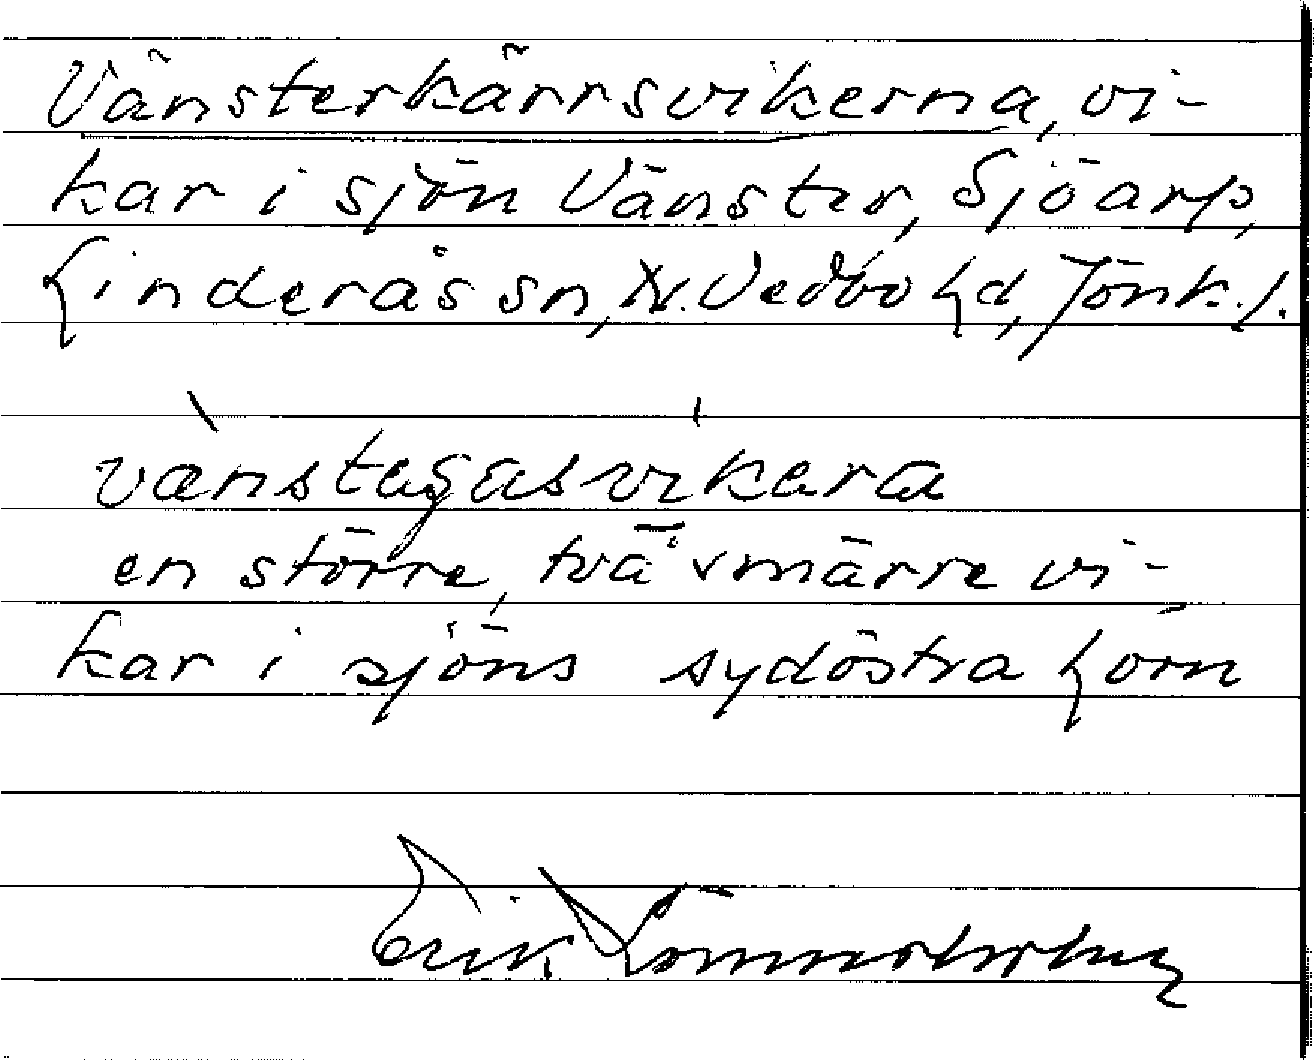 Vänsterkärrsvikerna, vi-
kar i sjön Vänster, Sjöarp,
Linderås sn, N. Vedbo hd, Jönk. l.
vænstegasvikera
en större, två smärre vi-
kar i sjöns sydöstra hörn
Erik